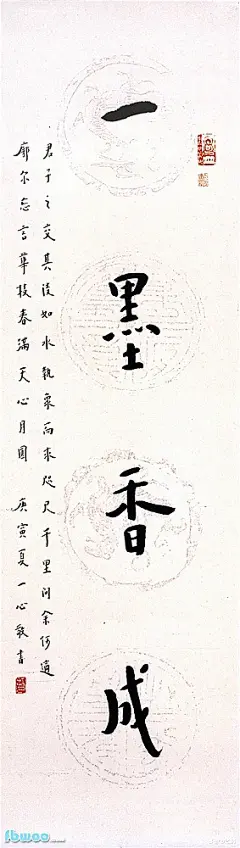 一墨香成
君子之交其淡如水執象而求咫尺千里问余何適
廓尔忘言華枝春滿天心月圓 庚寅夏一心敬書
fbwoo.com